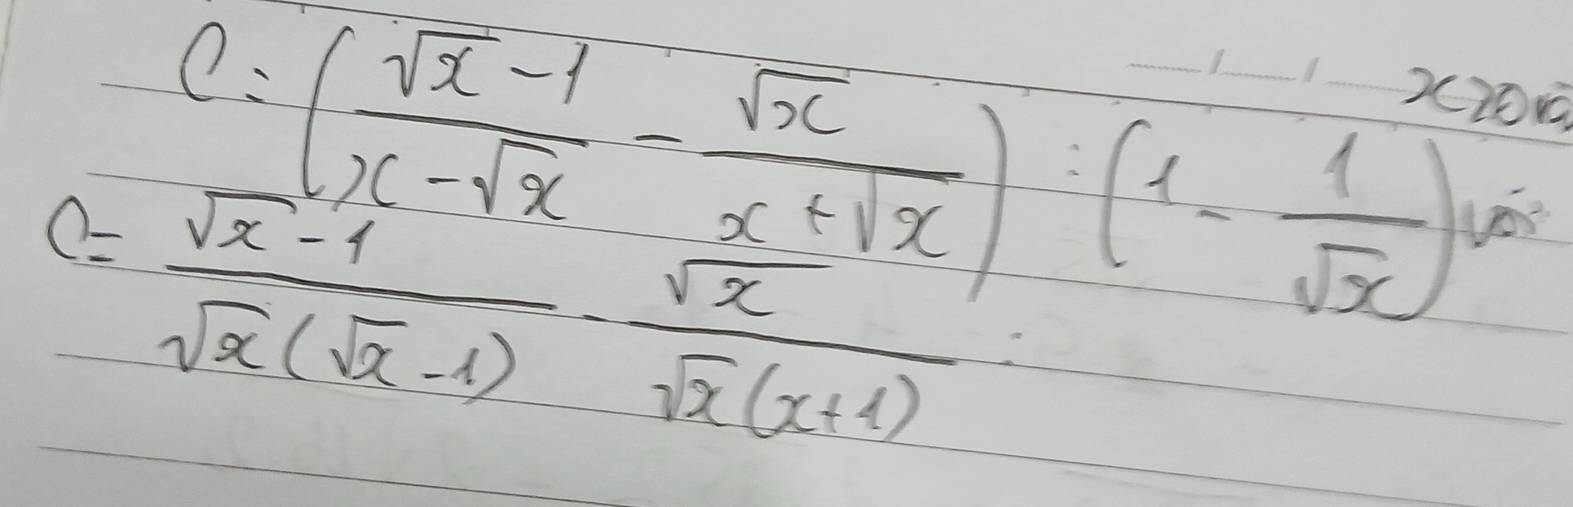 C = (\frac{\sqrt{x} - 1}{x - \sqrt{x}} - \frac{\sqrt{x}}{x + \sqrt{x}}) : (1 - \frac{1}{\sqrt{x}}) với x > 0 và
C = \frac{\sqrt{x} - 1}{\sqrt{x}(\sqrt{x} - 1)} - \frac{\sqrt{x}}{\sqrt{x}(x + 1)} :